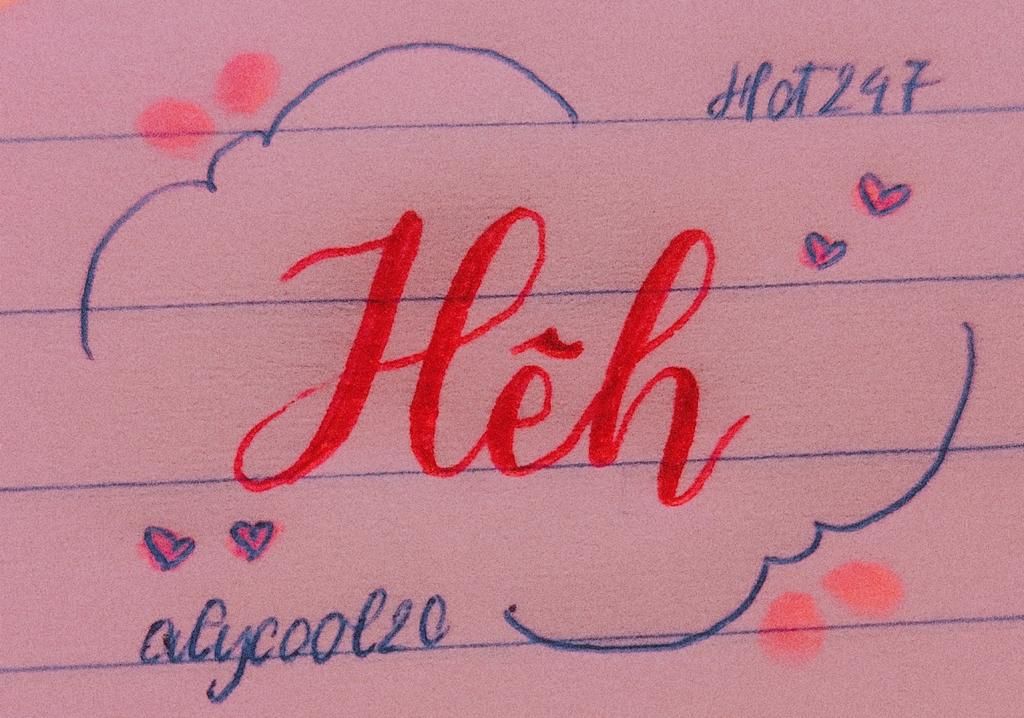 Hot247
Hẽh
alycool20